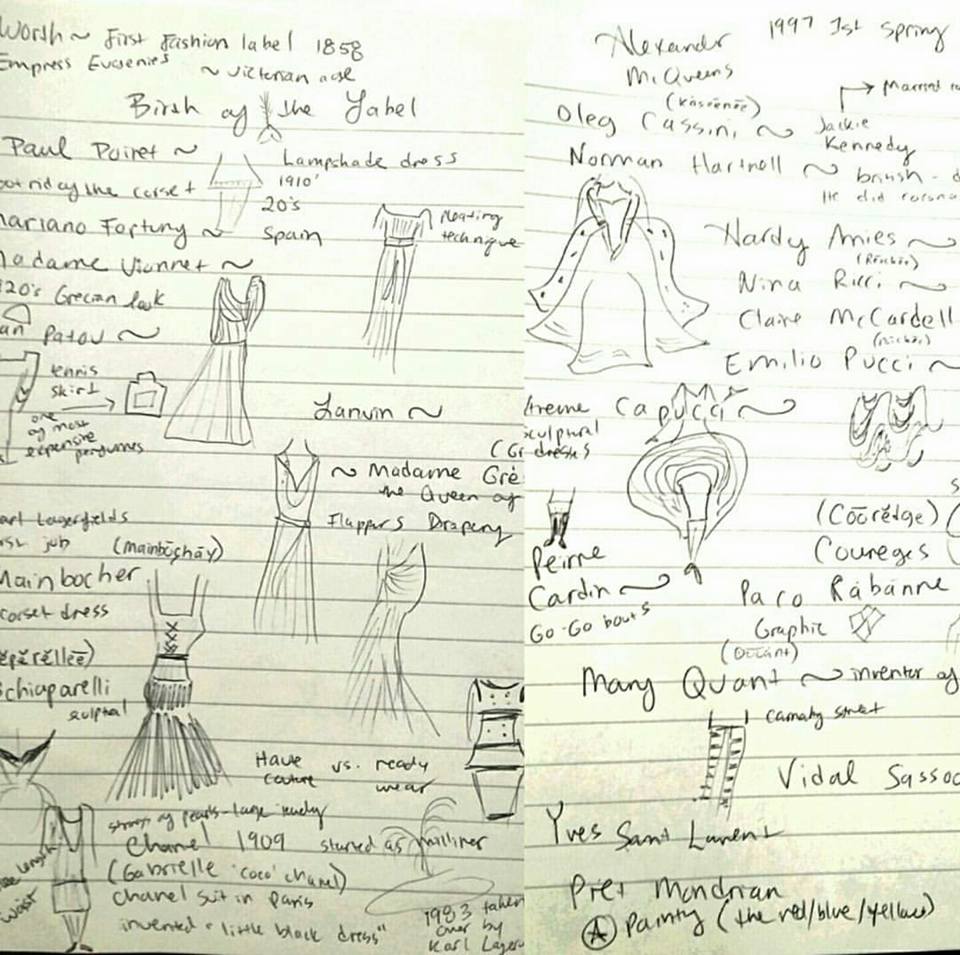 Worth ~ First Fashion label 1858
Empress Eugenies
~ victorian age
Birth of the Label
Paul Poiret ~
Lampshade dress
1910'
got rid of the corset
20's
Mariano Fortuny ~ Spain
Pleating
technique
Madame Vionnet ~
20's Grecian look
Patou ~
tennis
skirt
one
of most
expensive
perfumes
Lanvin ~
~ Madame Gré
the Queen of
Flappers Drapery
Karl Lagerfelds
job (Mainbōshāy)
Mainbocher
corset dress
Schiaparelli
sculptral
Haute vs. ready
couture wear
strings of pearls - large
Chanel 1909 started as milliner
(Gabrielle "coco" chanel)
chanel suit in Paris
invented "little black dress"
1983 taken
over by
Karl Lager
length
waist
Alexandr 1997 1st spring
McQueens
(Kăsēenēe)
Oleg Cassini ~
Married
Jackie
Kennedy
Norman Hartnell ~ british -
He did corona
Hardy Amies ~
Nina Ricci ~
Claire McCardell
Emilio Pucci ~
Capucci ~
sculptural
dresses
(Coōrĕdge)
Coureges
Peirre
Cardin ~
Go-Go boots
Paco Rabanne
Graphic
Mary Quant ~ inventor of
carnaby street
Vidal Sassoo
Yves Sant Laurent
Piet Mondrian
A Painty (the red/blue/yellow)